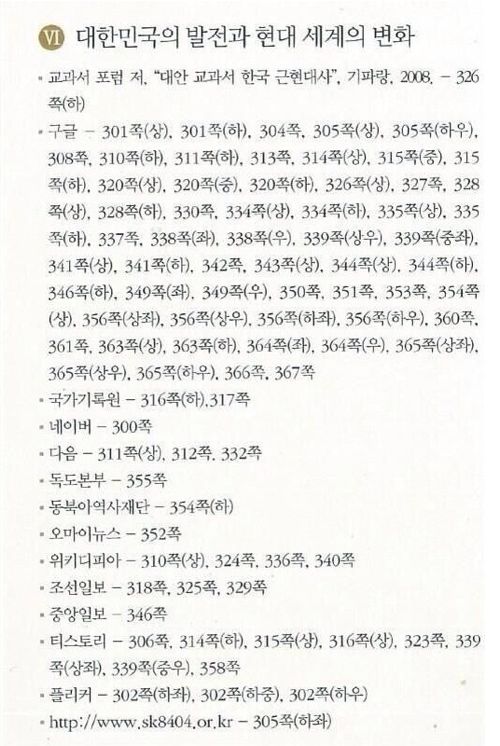 Ⅵ 대한민국의 발전과 현대 세계의 변화
• 교과서 포럼 저, “대안 교과서 한국 근현대사”, 기파랑, 2008. - 326
쪽(하)
• 구글 - 301쪽(상), 301쪽(하), 304쪽, 305쪽(상), 305쪽(하우),
308쪽, 310쪽(하), 311쪽(하), 313쪽, 314쪽(상), 315쪽(중), 315
쪽(하), 320쪽(상), 320쪽(중), 320쪽(하), 326쪽(상), 327쪽, 328
쪽(상), 328쪽(하), 330쪽, 334쪽(상), 334쪽(하), 335쪽(상), 335
쪽(하), 337쪽, 338쪽(좌), 338쪽(우), 339쪽(상우), 339쪽(중좌),
341쪽(상), 341쪽(하), 342쪽, 343쪽(상), 344쪽(상), 344쪽(하),
346쪽(하), 349쪽(좌), 349쪽(우), 350쪽, 351쪽, 353쪽, 354쪽
(상), 356쪽(상좌), 356쪽(상우), 356쪽(하좌), 356쪽(하우), 360쪽,
361쪽, 363쪽(상), 363쪽(하), 364쪽(좌), 364쪽(우), 365쪽(상좌),
365쪽(상우), 365쪽(하우), 366쪽, 367쪽
• 국가기록원 - 316쪽(하),317쪽
• 네이버 - 300쪽
• 다음 - 311쪽(상), 312쪽, 332쪽
• 독도본부 - 355쪽
• 동북아역사재단 - 354쪽(하)
• 오마이뉴스 - 352쪽
• 위키디피아 - 310쪽(상), 324쪽, 336쪽, 340쪽
• 조선일보 - 318쪽, 325쪽, 329쪽
• 중앙일보 - 346쪽
• 티스토리 - 306쪽, 314쪽(하), 315쪽(상), 316쪽(상), 323쪽, 339
쪽(상좌), 339쪽(중우), 358쪽
• 플리커 - 302쪽(하좌), 302쪽(하중), 302쪽(하우)
• http://www.sk8404.or.kr - 305쪽(하좌)